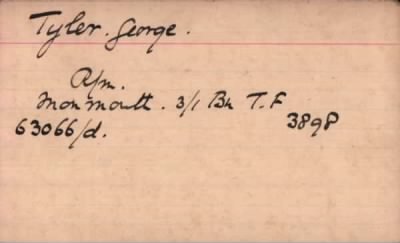 Tyler. George.
Rfm.
Monmouth. 3/1 Bn T.F
3898
63066/d.